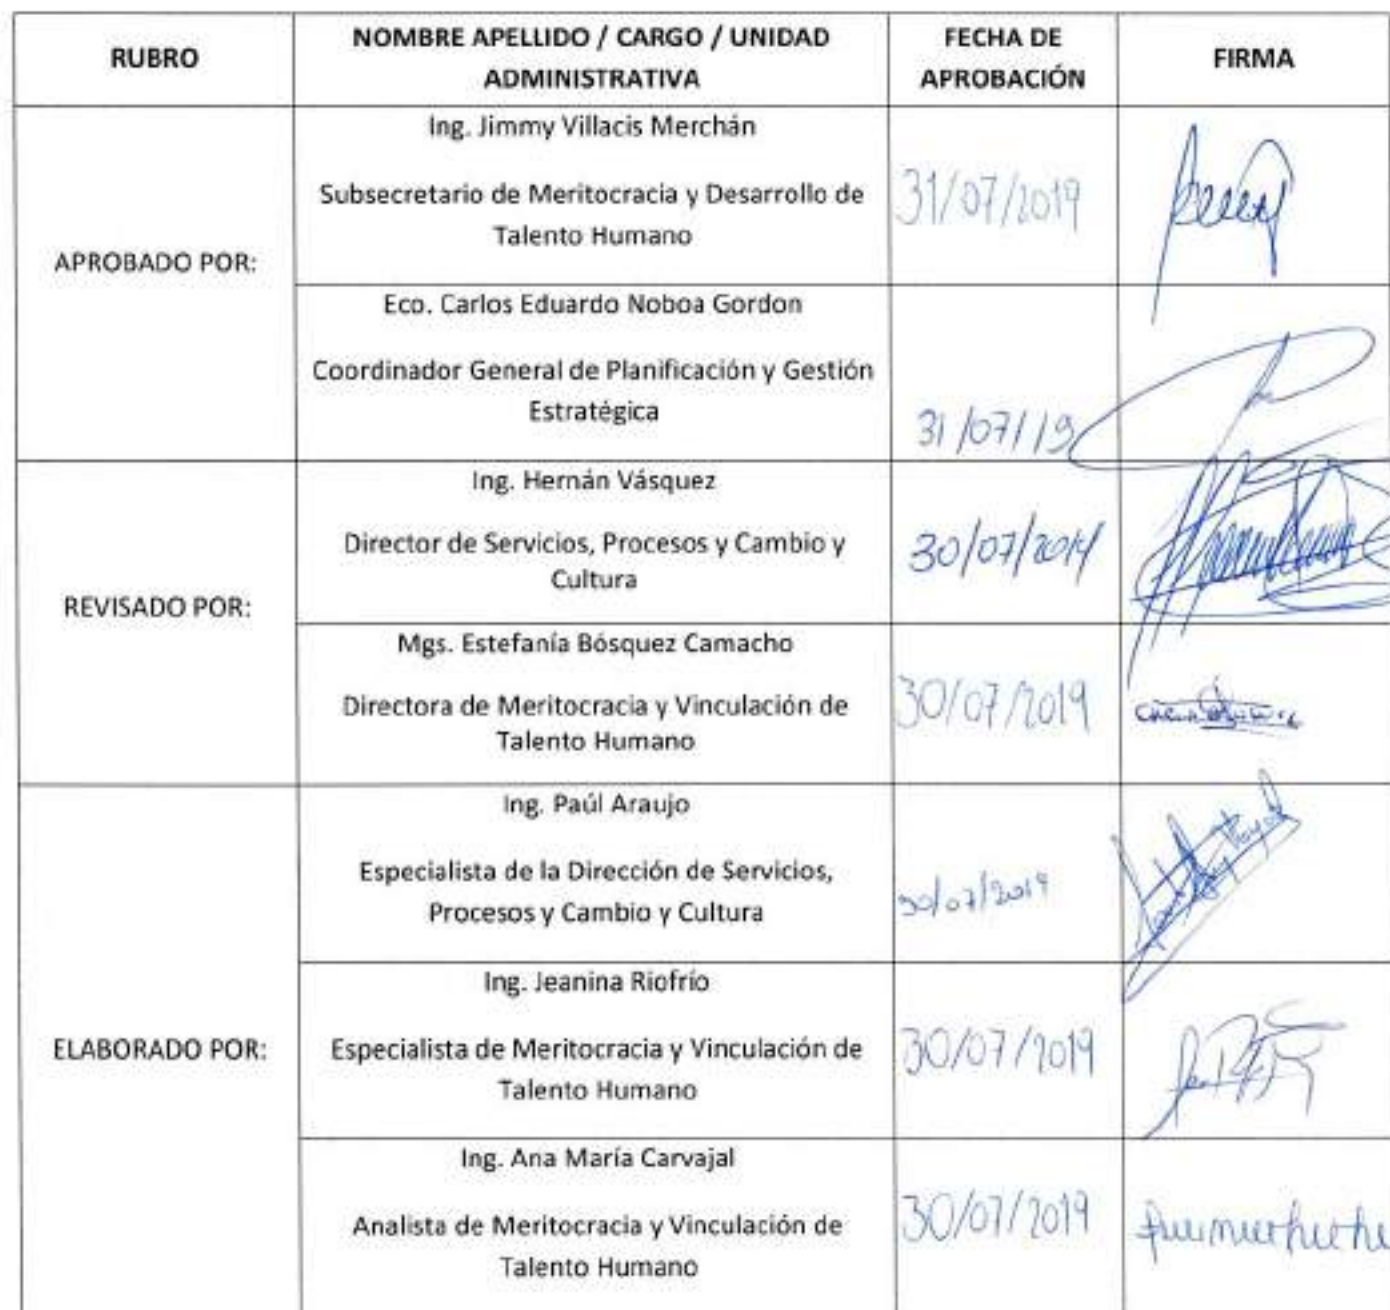 RUBRO
NOMBRE APELLIDO / CARGO / UNIDAD
ADMINISTRATIVA
FECHA DE
APROBACIÓN
FIRMA
APROBADO POR:
Ing. Jimmy Villacis Merchán
Subsecretario de Meritocracia y Desarrollo de
Talento Humano
31/07/2019
Eco. Carlos Eduardo Noboa Gordon
Coordinador General de Planificación y Gestión
Estratégica
31/07/19
REVISADO POR:
Ing. Hernán Vásquez
Director de Servicios, Procesos y Cambio y
Cultura
Mgs. Estefanía Bósquez Camacho
Directora de Meritocracia y Vinculación de
Talento Humano
30/07/2019
ELABORADO POR:
Ing. Paúl Araujo
Especialista de la Dirección de Servicios,
Procesos y Cambio y Cultura
30/07/2019
Ing. Jeanina Riofrío
Especialista de Meritocracia y Vinculación de
Talento Humano
30/07/2019
Ing. Ana María Carvajal
Analista de Meritocracia y Vinculación de
Talento Humano
30/07/2019